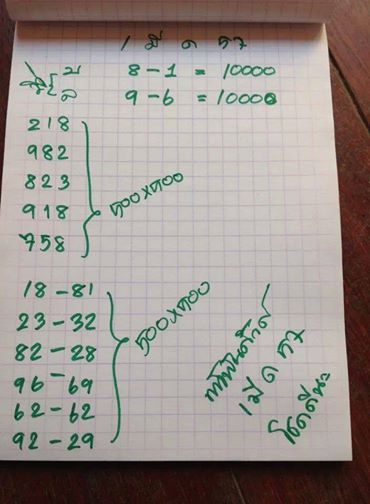 1 มี ด 57
วิ่ง บ 8-1 = 10000
ล 9-6 = 10000
218
982
823
918
758
500x500
18-81
23-32
82-28
96-69
62-62
92-29
500x500
1 มี ด 57
โชคดีนะ